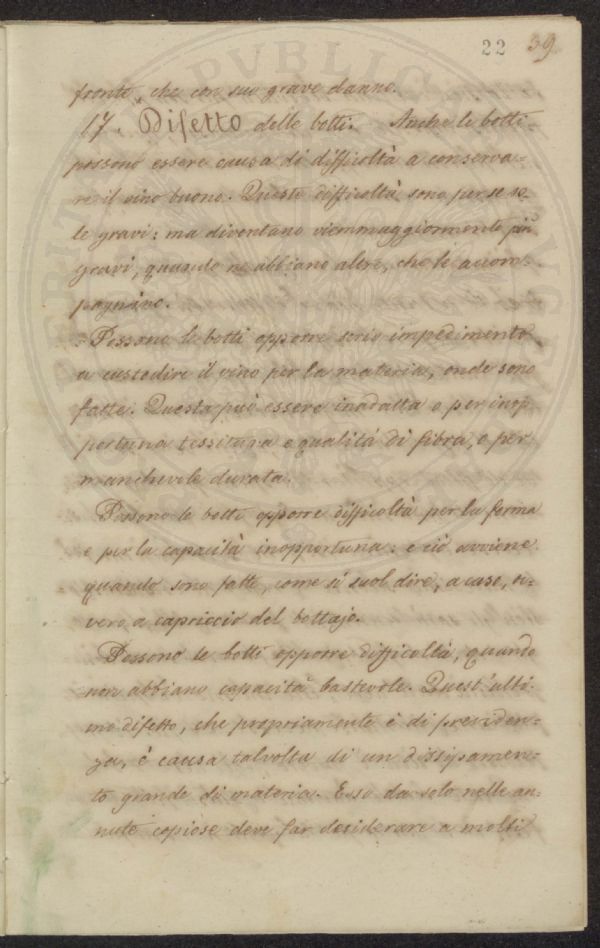 22 39
fronte, che con suo grave danno.
17. Difetto delle botti. Anche le botti
possono essere causa di difficoltà a conserva-
re il vino buono. Queste difficoltà sono per se so-
le gravi: ma diventano viemmaggiormente più
gravi, quando ne abbiano altre, che le accom-
pagnino.
Possono le botti opporre serio impedimento
a custodire il vino per la materia, onde sono
fatte. Questa può essere inadatta o per inop-
portuna tessitura e qualità di fibra, o per
manchevole durata.
Possono le botti opporre difficoltà per la forma
e per la capacità inopportuna: e ciò avviene
quando sono fatte, come si suol dire, a caso, ov-
vero a capriccio del bottajo.
Possono le botti opporre difficoltà, quando
non abbiano capacità bastevole. Quest'ulti-
mo difetto, che propriamente è di previden-
za, è causa talvolta di un dissipamen-
to grande di materia. Esso da solo nelle an-
nate copiose deve far desiderare a molti